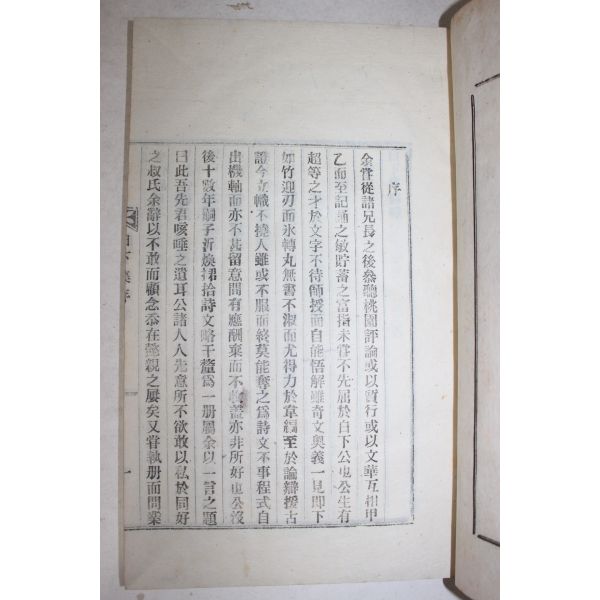 序
余嘗從諸兄長之後參聽桃園評論或以質行或以文華互相甲
乙而至記誦之敏貯蓄之富指未嘗不先屈於白下公也公生有
超等之才於文字不待師授而自能悟解雖奇文奧義一見卽下
如竹迎刃而氷轉丸無書不淑而尤得力於韋編至於論辯援古
證今立幟不撓人雖或不服而終莫能奪之爲詩文不事程式自
出機軸而亦不甚留意間有應酬棄而不蓋亦非所好也公沒
後十數年嗣子沂煥捃拾詩文略干釐爲一册屬余以一言之題
曰此吾先君咳唾之遺耳公諸人人先意所不欲敢以私於同好
之叔氏余辭以不敢而顧念忝在懿親之屢矣又嘗執册而問業
白下集序
一